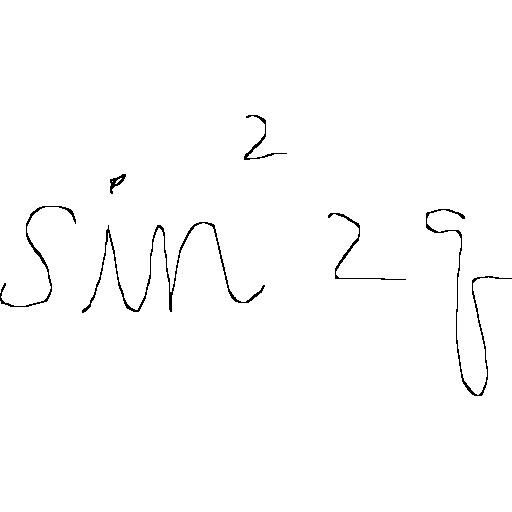 sin² 2q